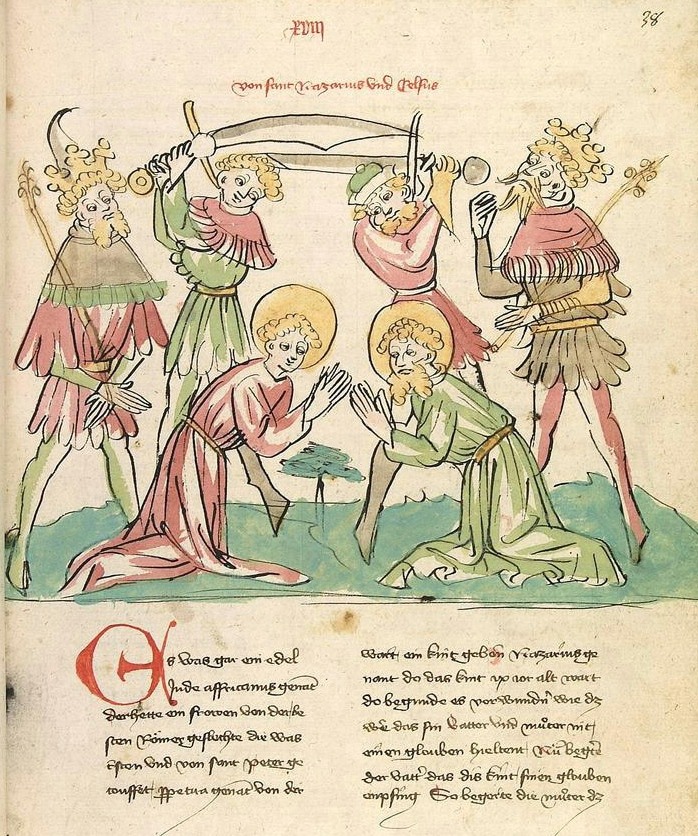 38
xviij
von sant Nazarius vnd Celsus
Es was gar ein edel
Jude affricanus genāt
der hette ein frowen von der be
sten Römer geslehte die was
cristen vnd von sant peter ge
touffet ꝑpetua genāt von der
wart ein kint geborn Nazarius ge
nant do das kint ix ior alt wart
do begunde es verwundn̄ wie dz
were das sin vatter vnd mūter nit
einen glouben hieltent Nū begerte
der vatt͛ das dis kint sinen glouben
enpfing So begerte die mūter dz